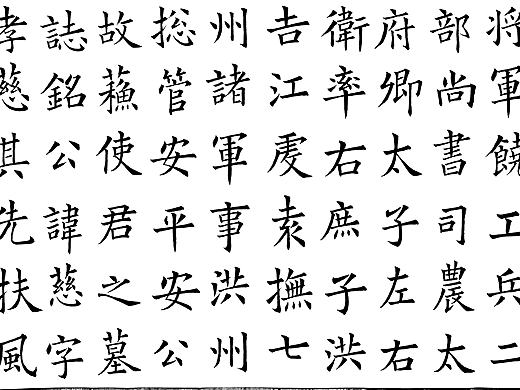 将軍饒工兵二
部尚書司農太
府卿太子左右
衛率右庶子洪
吉江虔袁撫七
州諸軍事洪州
捴管安平安公
故蘓使君之墓
誌銘公諱慈字
孝慈其先扶風